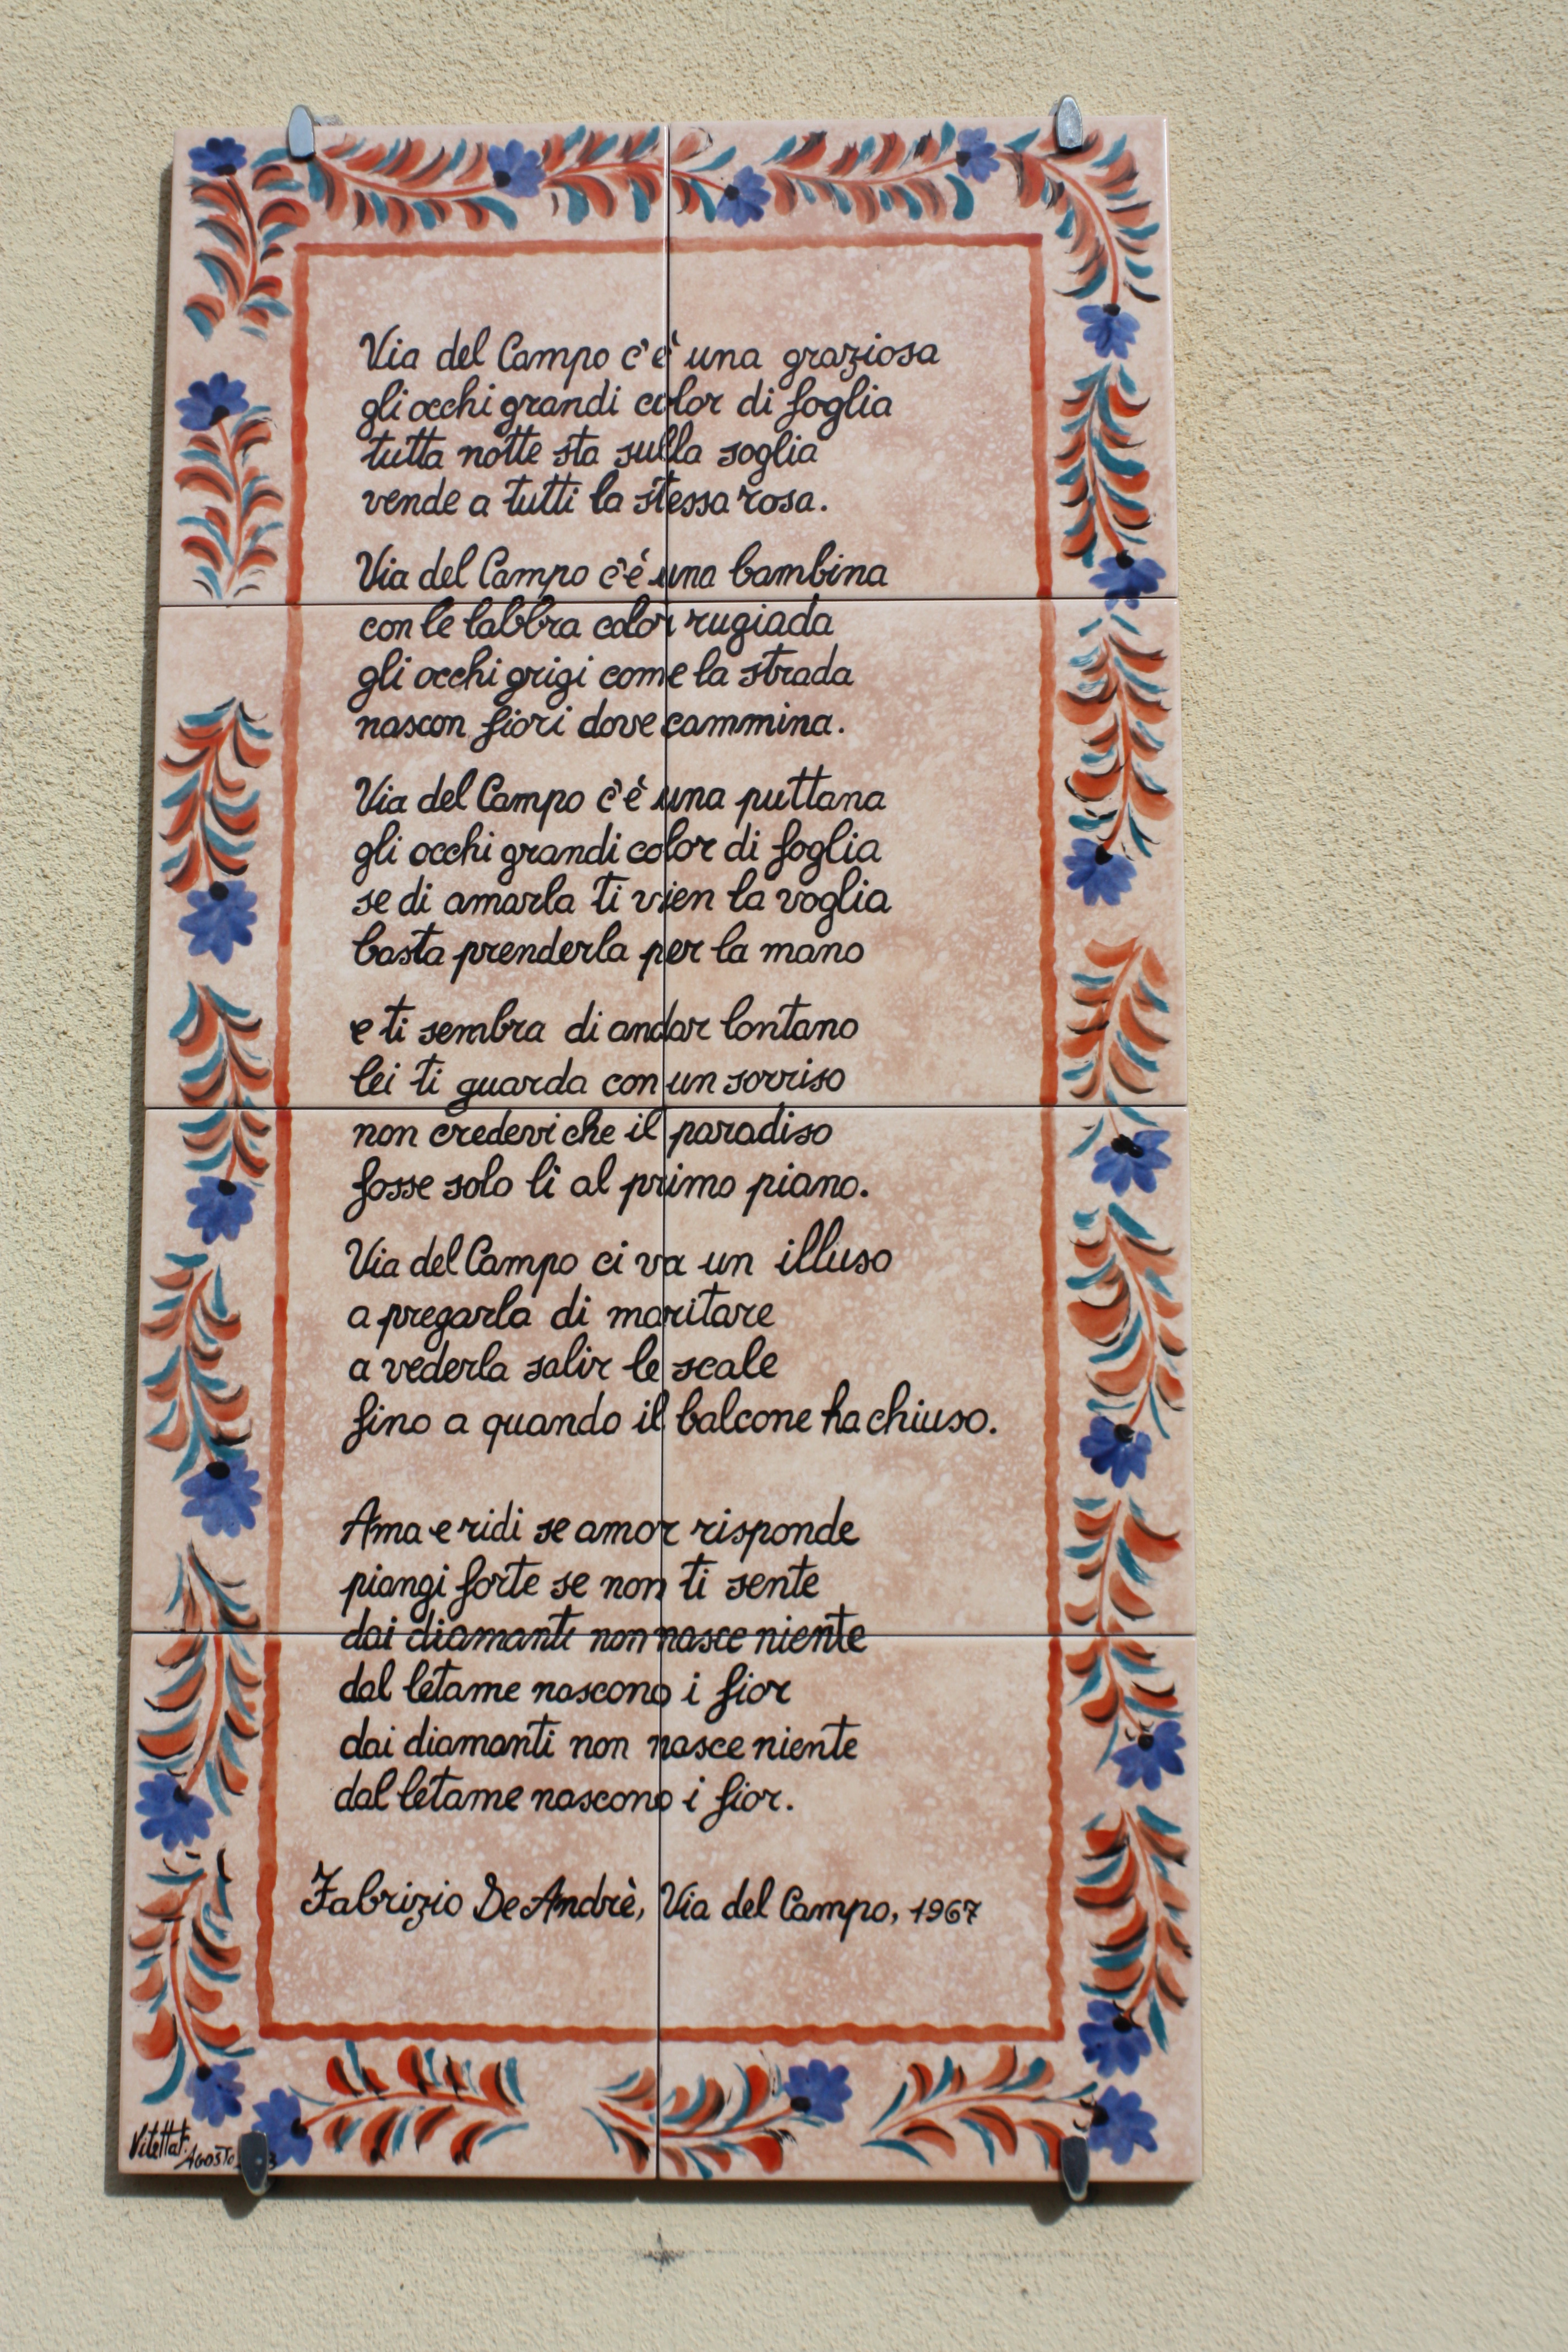 Via del Campo c'è una graziosa
gli occhi grandi color di foglia
tutta notte sta sulla soglia
vende a tutti la stessa rosa.
Via del Campo c'é una bambina
con le labbra color rugiada
gli occhi grigi come la strada
nascon fiori dove cammina.
Via del Campo c'é una puttana
gli occhi grandi color di foglia
se di amarla ti vien la voglia
basta prenderla per la mano
e ti sembra di andar lontano
lei ti guarda con un sorriso
non credevi che il paradiso
fosse solo lì al primo piano.
Via del Campo ci va un illuso
a pregarla di maritare
a vederla salir le scale
fino a quando il balcone ha chiuso.
Ama e ridi se amor risponde
piangi forte se non ti sente
dai diamanti non nasce niente
dal letame nascono i fior
dai diamanti non nasce niente
dal letame nascono i fior.
Fabrizio De Andrè, Via del Campo, 1967
Agosto